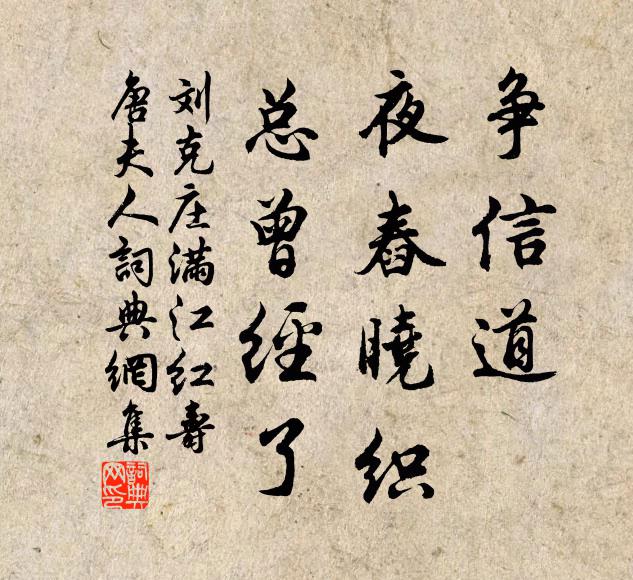 争信道
夜舂曉织
总曾經了
刘克庄满江红壽
唐夫人詞典網集
詞典网印